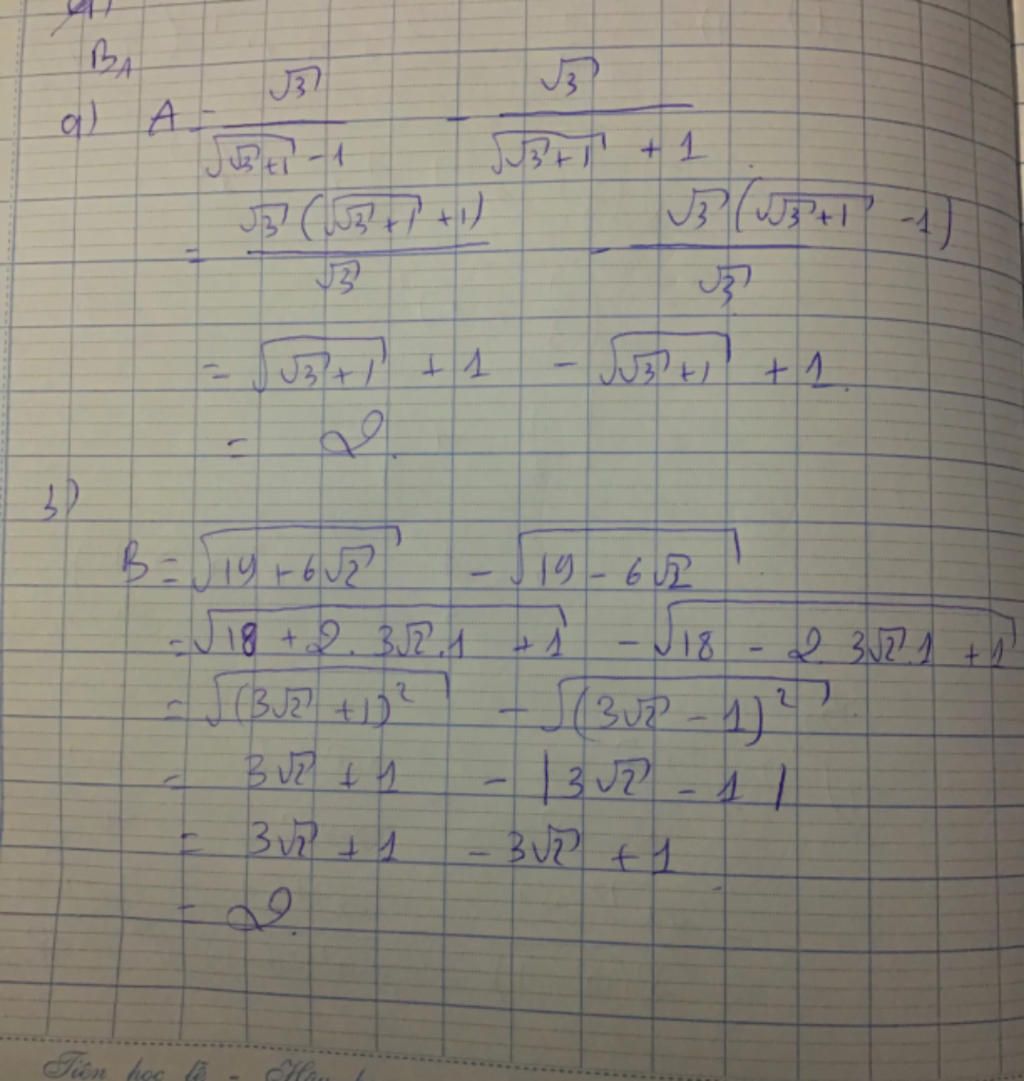 B_A
a) A = √3/(√(√3+1) - 1) - √3/(√(√3+1) + 1)
= √3(√(√3+1) + 1)/√3 - √3(√(√3+1) - 1)/√3
= √(√3+1) + 1 - √(√3+1) + 1
= 2.
b)
B = √(19 + 6√2) - √(19 - 6√2)
= √(18 + 2.3√2.1 + 1) - √(18 - 2 3√2.1 + 1)
= √((3√2 + 1)²) - √((3√2 - 1)²)
= 3√2 + 1 - |3√2 - 1|
= 3√2 + 1 - 3√2 + 1
= 2.
Tiên học lễ -